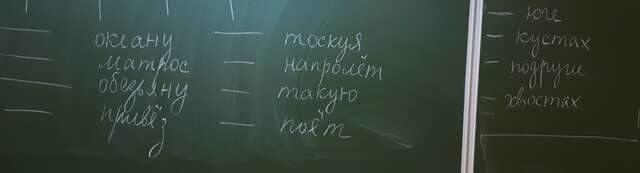 океану
матрос
обезьяну
привёз
тоскуя
напролёт
такую
поёт
юге
кустах
подруги
хвостах